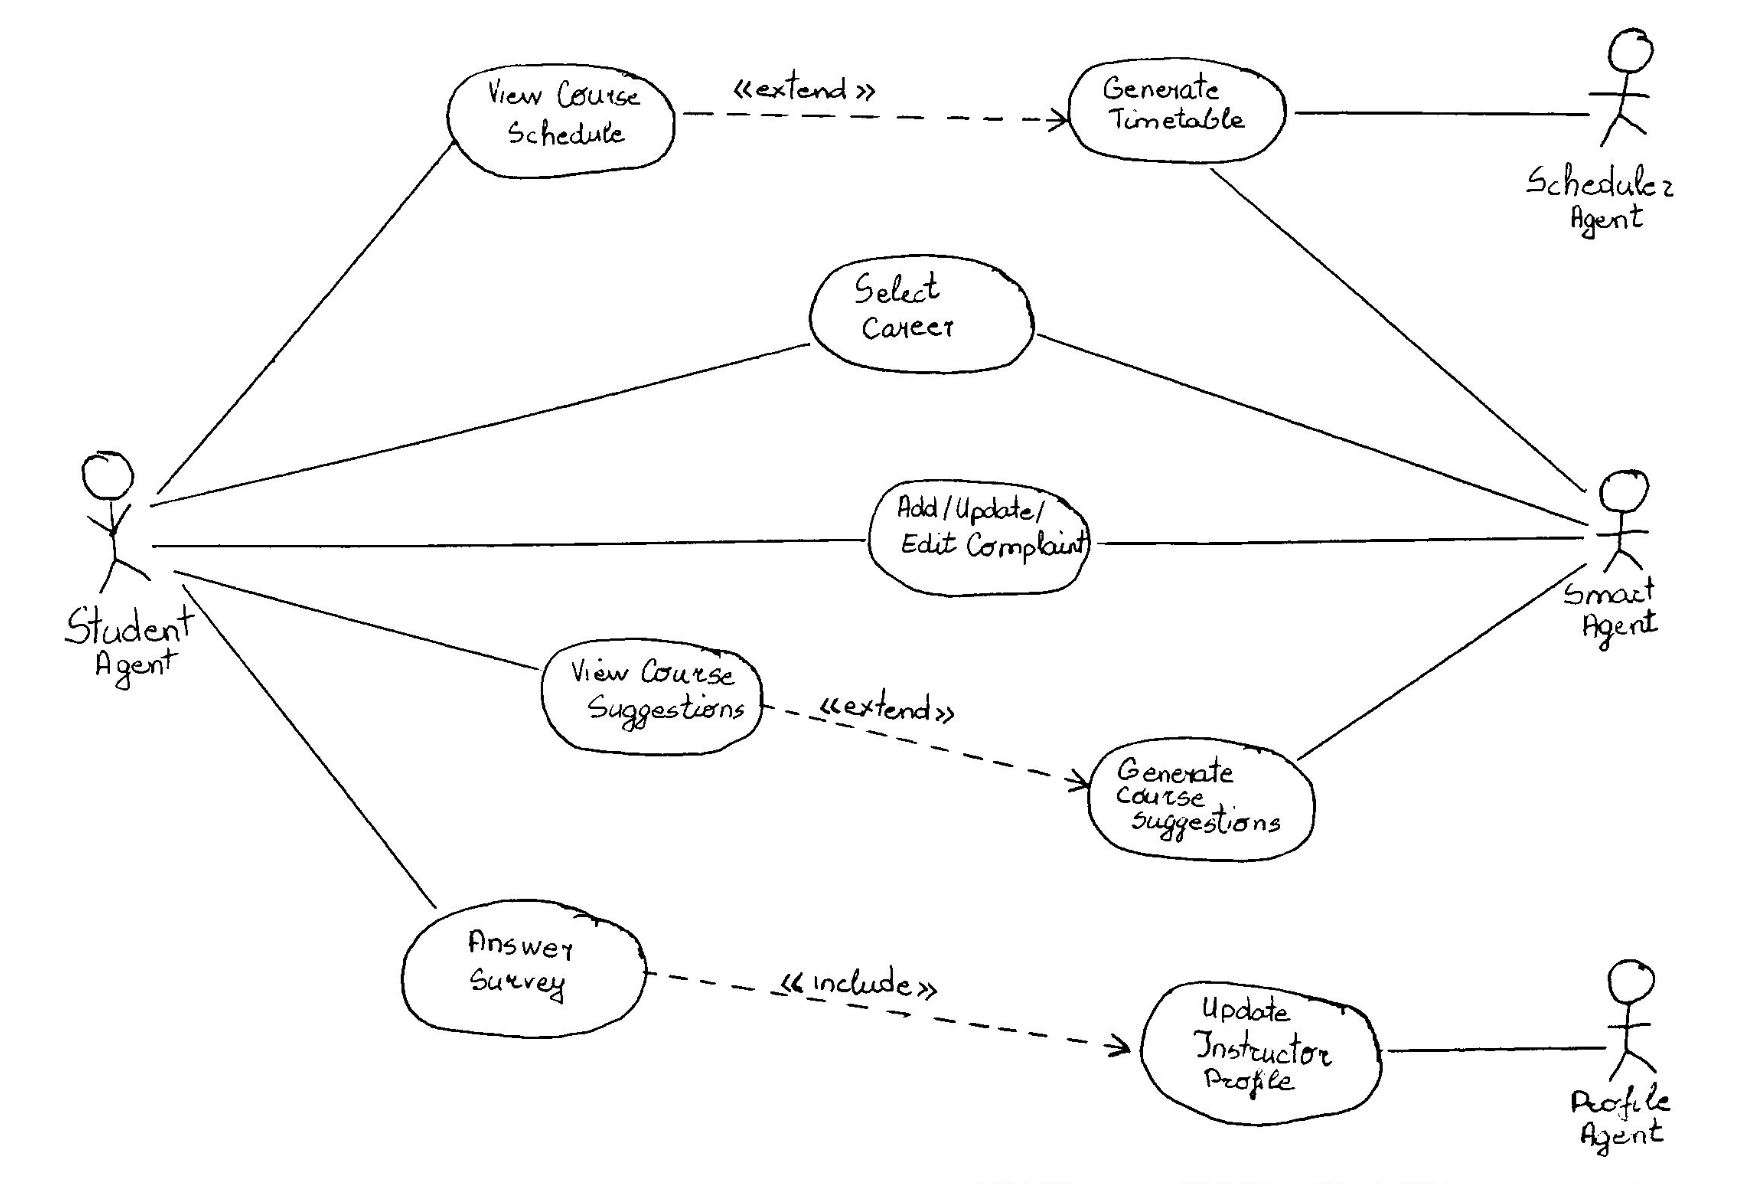 View Course
Schedule
«extend»
Generate
Timetable
Scheduler
Agent
Select
Career
Add/Update/
Edit Complaint
Student
Agent
Smart
Agent
View Course
Suggestions
«extend»
Generate
Course
Suggestions
Answer
Survey
«include»
Update
Instructor
Profile
Profile
Agent